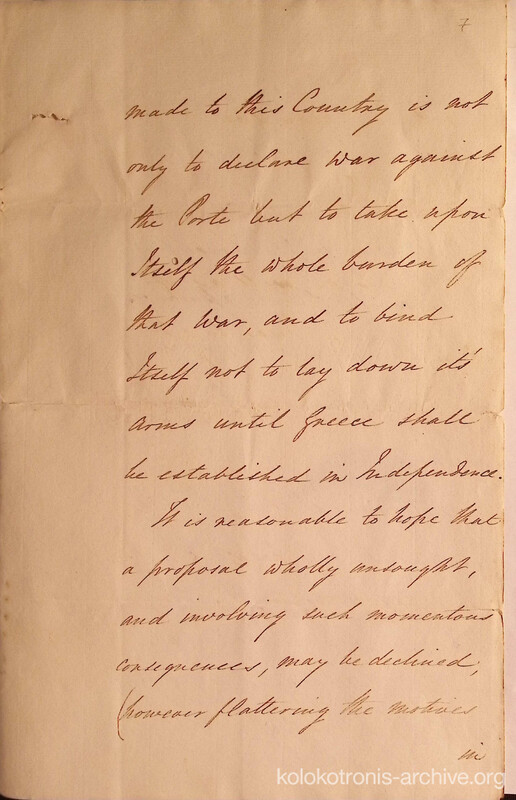 7
made to this Country is not
only to declare War against
the Porte but to take upon
Itself the whole burden of
that War, and to bind
Itself not to lay down it's
Arms until Greece shall
be established in Independence.
It is reasonable to hope that
a proposal wholly unsought,
and involving such momentous
consequences, may be declined,
(however flattering the motives
in
kolokotronis-archive.org